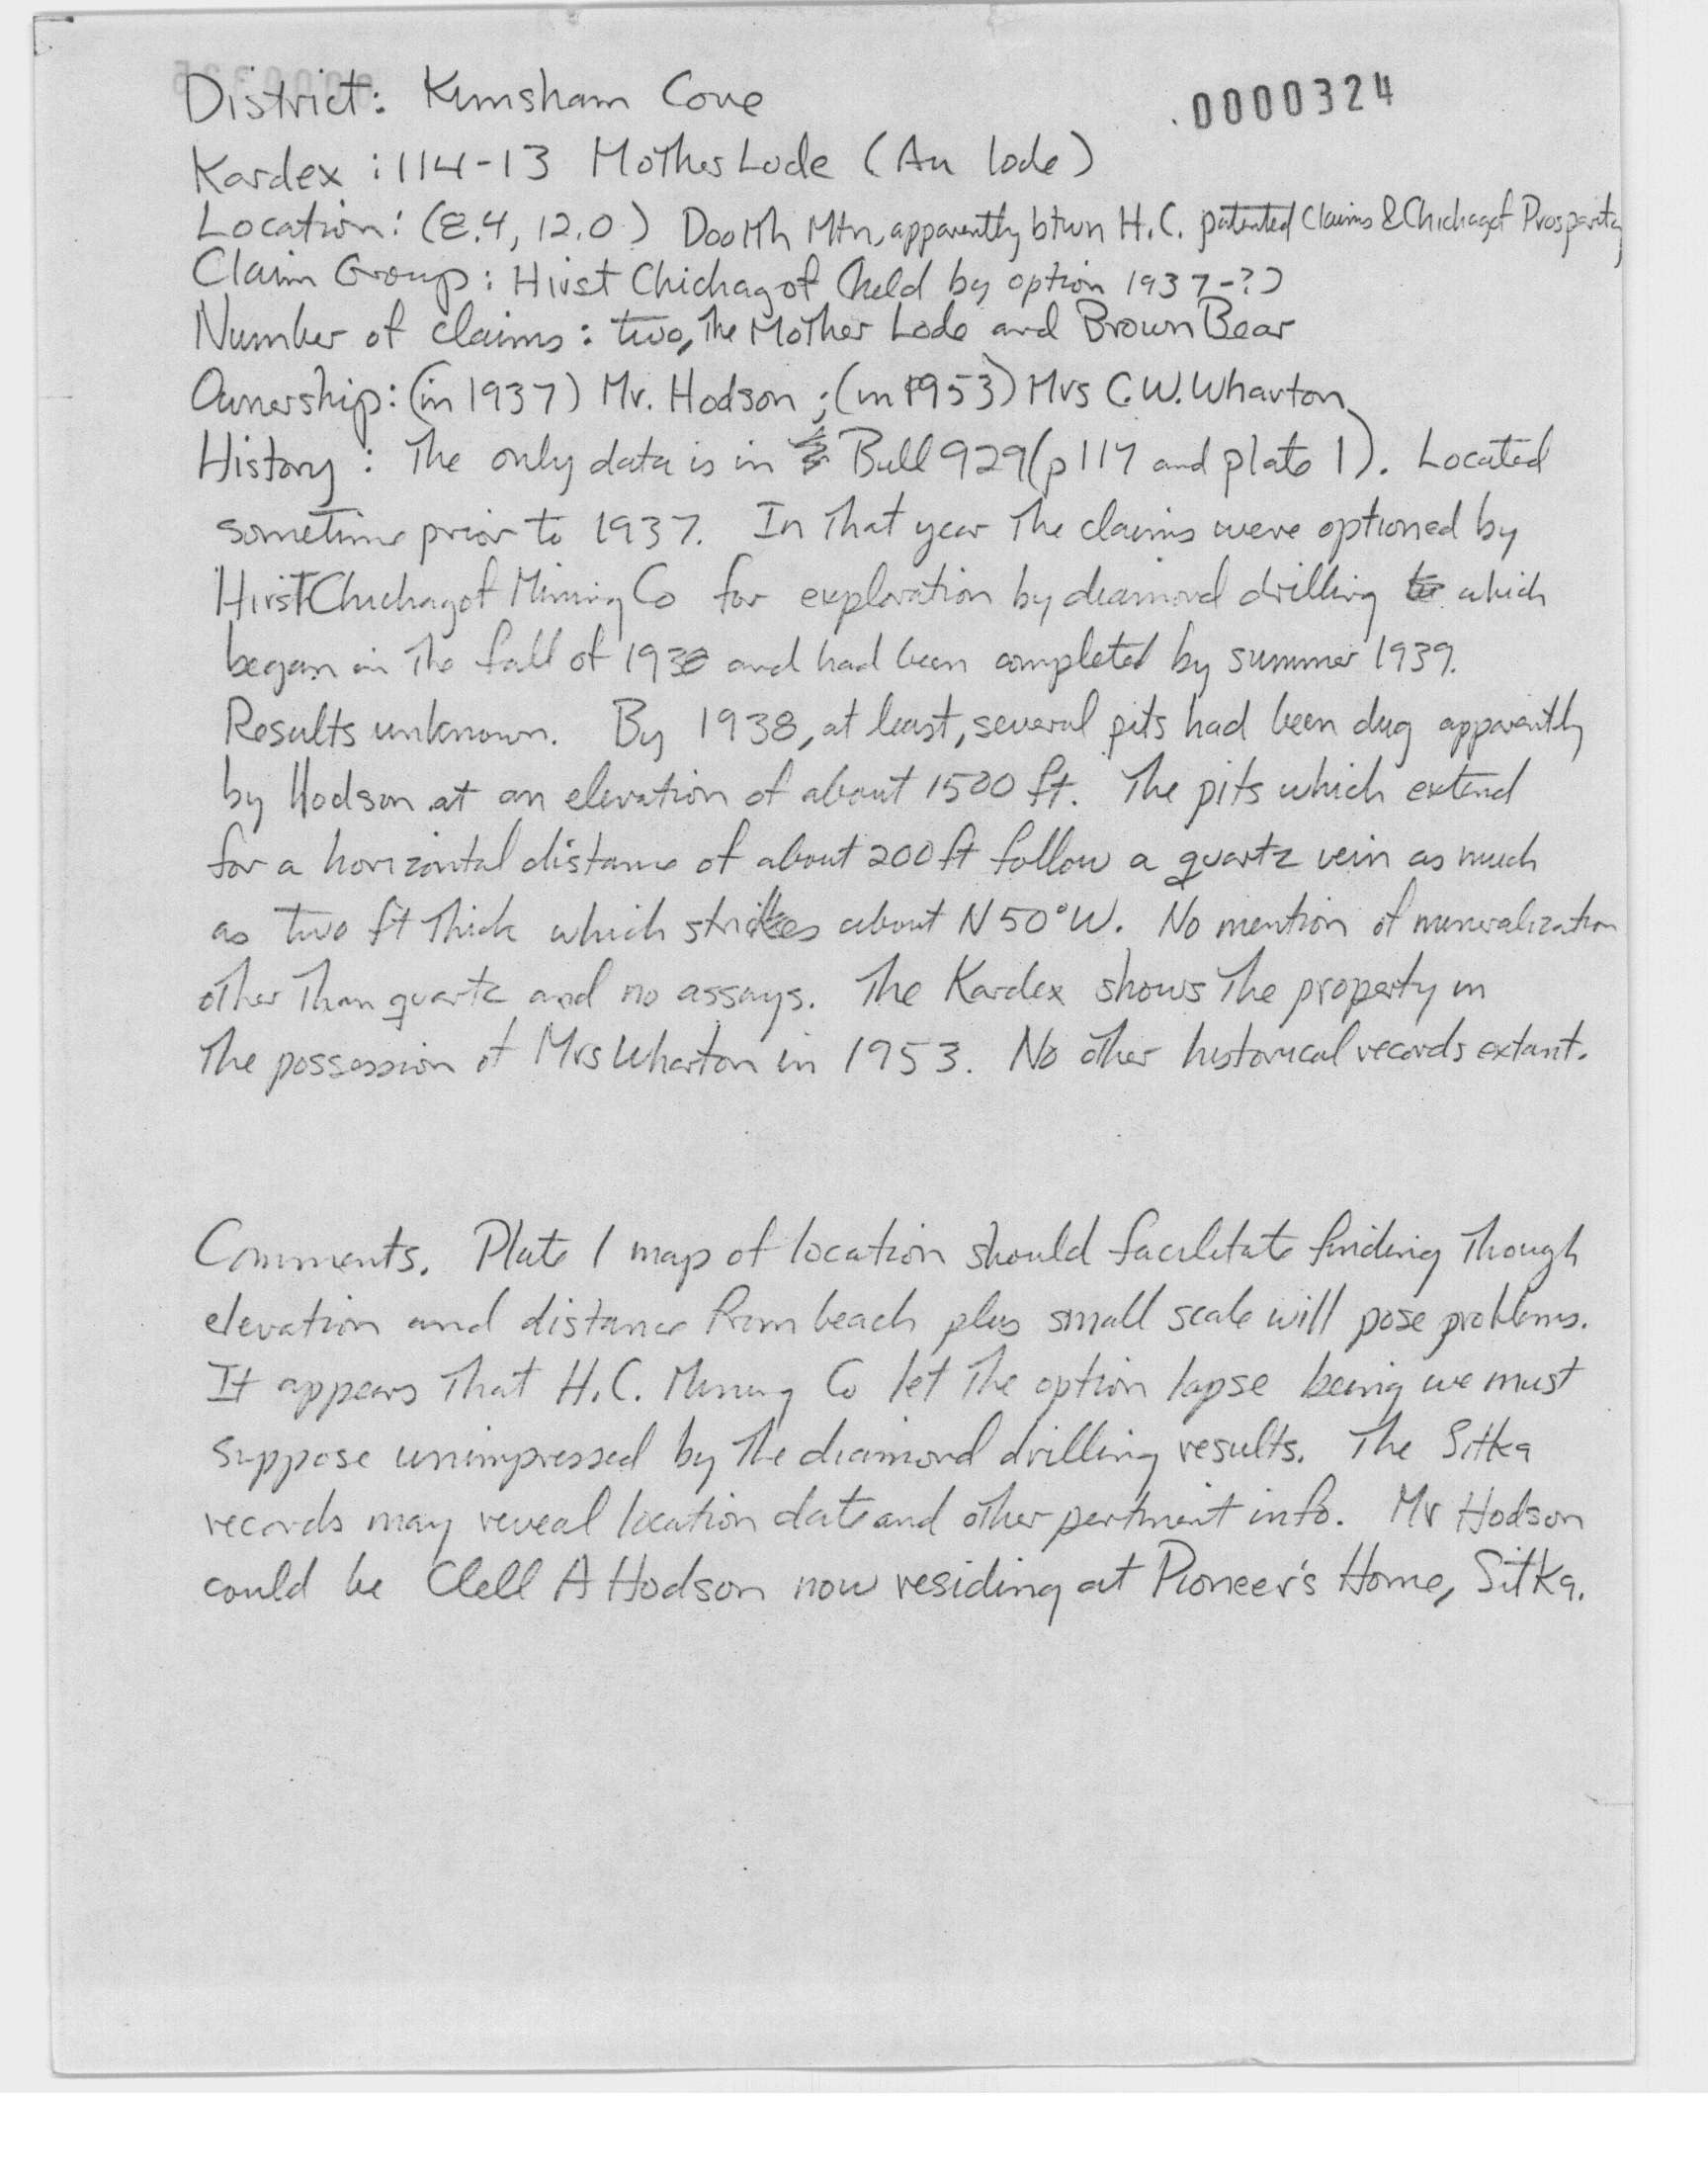 District: Kimsham Cove
.0000324
Kardex : 114-13 Mother Lode (Au lode)
Location: (8.4, 12.0) Doolth Mtn, apparently btwn H.C. patented Claims & Chichagof Prosperity
Claim Group: Hirst Chichagof (held by option 1937-?)
Number of claims: two, the Mother Lode and Brown Bear
Ownership: (in 1937) Mr. Hodson ; (in 1953) Mrs C.W. Wharton
History : The only data is in Bull 929 (p 117 and plate 1). Located
sometime prior to 1937. In that year the claims were optioned by
Hirst Chichagof Mining Co for exploration by diamond drilling which
began in the fall of 1938 and had been completed by summer 1939.
Results unknown. By 1938, at least, several pits had been dug apparently
by Hodson at an elevation of about 1500 ft. The pits which extend
for a horizontal distance of about 200 ft follow a quartz vein as much
as two ft thick which strikes about N 50° W. No mention of mineralization
other than quartz and no assays. The Kardex shows the property in
the possession of Mrs Wharton in 1953. No other historical records extant.
Comments. Plate 1 map of location should facilitate finding though
elevation and distance from beach plus small scale will pose problems.
It appears that H.C. Mining Co let the option lapse being we must
suppose unimpressed by the diamond drilling results. The Sitka
records may reveal location date and other pertinent info. Mr Hodson
could be Clell A Hodson now residing at Pioneer's Home, Sitka.